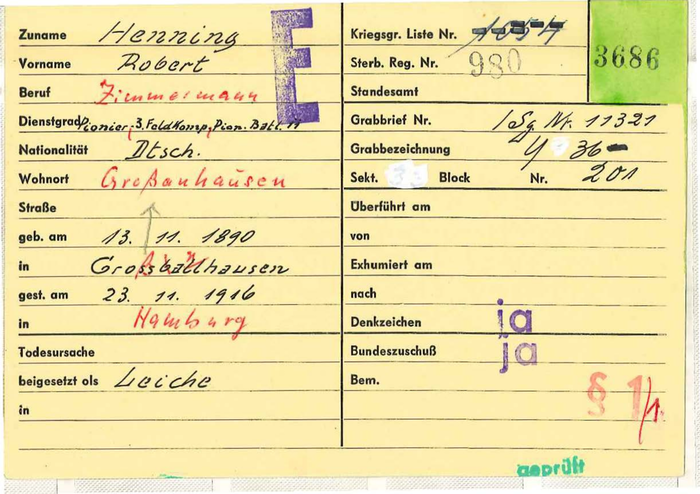 Zuname Henning
Vorname Robert
Beruf Zimmermann
Dienstgrad Pionier, 3. Feldkomp, Pion. Batl. 11
Nationalität Dtsch.
Wohnort Großanhausen
Straße
geb. am 13. 11. 1890
in Grossballhausen
gest. am 23. 11. 1916
in Hamburg
Todesursache
beigesetzt als Leiche
in
E
Kriegsgr. Liste Nr. 1654
Sterb. Reg. Nr. 980
3686
Standesamt
Grabbrief Nr. Lfg. Nr. 11321
Grabbezeichnung y 36
Sekt. Block Nr. 201
Überführt am
von
Exhumiert am
nach
Denkzeichen ja
Bundeszuschuß ja
Bem.
§ 1/1.
geprüft